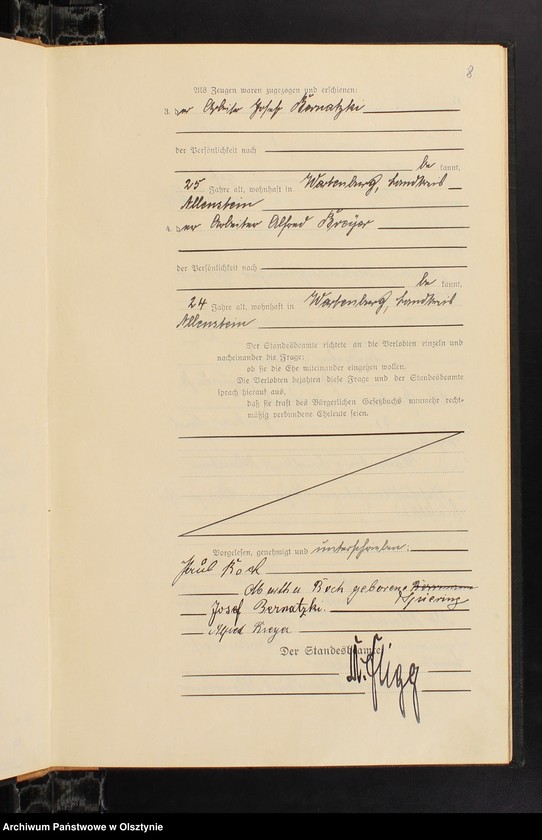 8
Als Zeugen waren zugezogen und erschienen:
3. der Arbeiter Josef Bernatzki
der Persönlichkeit nach
be kannt,
25 Jahre alt, wohnhaft in Wartenburg, Landkreis
Allenstein
4. der Arbeiter Alfred Kreyer
der Persönlichkeit nach
be kannt,
24 Jahre alt, wohnhaft in Wartenburg, Landkreis
Allenstein
Der Standesbeamte richtete an die Verlobten einzeln und
nacheinander die Frage:
ob sie die Ehe miteinander eingehen wollen.
Die Verlobten bejahten diese Frage und der Standesbeamte
sprach hierauf aus,
daß sie kraft des Bürgerlichen Gesetzbuchs nunmehr recht-
mäßig verbundene Eheleute seien.
Vorgelesen, genehmigt und unterschrieben:
Paul Koch
Martha Koch geborene
Spiering
Josef Bernatzki.
Alfred Kreyer
Der Standesbeamte
Archiwum Państwowe w Olsztynie